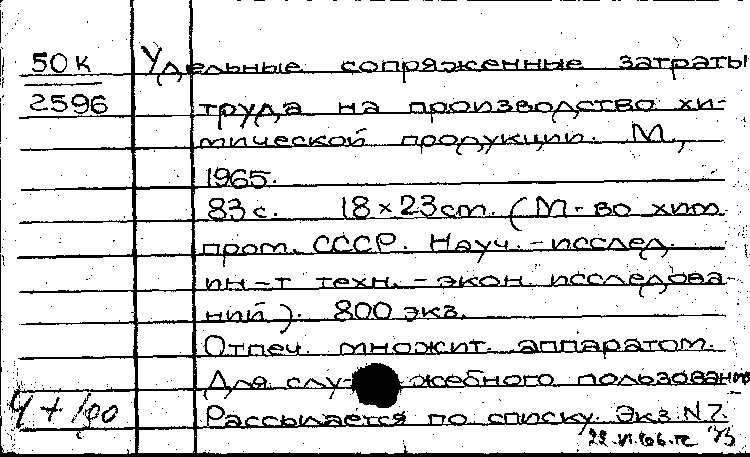 50к
2596
Удельные сопряженные затраты
труда на производство хи-
мической продукции. М.,
1965.
83с. 18×23cm. (М-во хим.
пром. СССР. Науч.-исслед.
ин-т техн.-экон. исследова-
ний). 800 экз.
Отпеч. множит. аппаратом.
Для слу- жебного пользования
Рассылается по списку. Экз. N7.